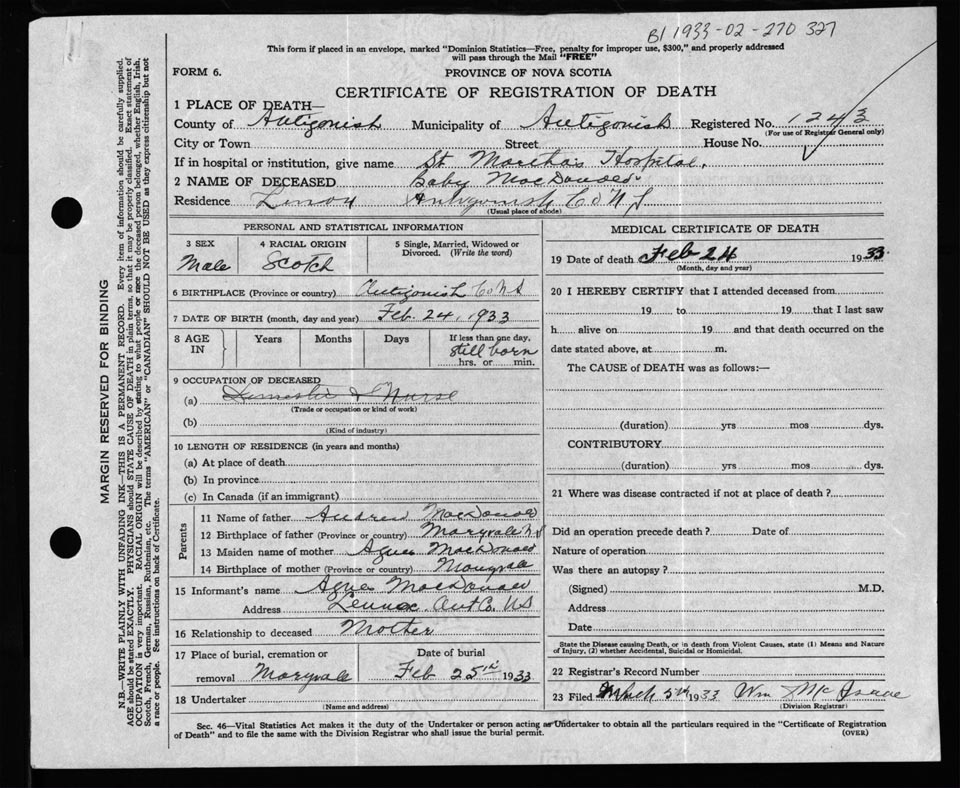 B1 1933-02-270 327
This form if placed in an envelope, marked "Dominion Statistics—Free, penalty for improper use, $300," and properly addressed
will pass through the Mail "FREE"
FORM 6.
PROVINCE OF NOVA SCOTIA
CERTIFICATE OF REGISTRATION OF DEATH
1 PLACE OF DEATH—
County of Antigonish Municipality of Antigonish Registered No. 1243
(For use of Registrar General only)
City or Town Street House No.
If in hospital or institution, give name St Martha's Hospital.
2 NAME OF DECEASED Baby MacDonald
Residence Antigonish Co N S
(Usual place of abode)
PERSONAL AND STATISTICAL INFORMATION
3 SEX 4 RACIAL ORIGIN 5 Single, Married, Widowed or
Divorced. (Write the word)
Male Scotch
6 BIRTHPLACE (Province or country) Antigonish Co N S
7 DATE OF BIRTH (month, day and year) Feb. 24, 1933
8 AGE IN Years Months Days If less than one day,
still born
hrs. or min.
9 OCCUPATION OF DECEASED
(a) Nurse
(Trade or occupation or kind of work)
(b)
(Kind of industry)
10 LENGTH OF RESIDENCE (in years and months)
(a) At place of death
(b) In province
(c) In Canada (if an immigrant)
Parents
11 Name of father Andrew MacDonald
12 Birthplace of father (Province or country) Maryvale N S
13 Maiden name of mother Agnes MacDonald
14 Birthplace of mother (Province or country) Maryvale
15 Informant's name Agnes MacDonald
Address Lennox Ant Co. N S
16 Relationship to deceased Mother
17 Place of burial, cremation or Date of burial
removal Maryvale Feb 25th 1933
18 Undertaker
(Name and address)
MEDICAL CERTIFICATE OF DEATH
19 Date of death Feb 24 1933
(Month, day and year)
20 I HEREBY CERTIFY that I attended deceased from
19 to 19 that I last saw
h alive on 19 and that death occurred on the
date stated above, at m.
The CAUSE of DEATH was as follows:—
(duration) yrs mos dys.
CONTRIBUTORY
(duration) yrs mos dys.
21 Where was disease contracted if not at place of death?
Did an operation precede death? Date of
Nature of operation
Was there an autopsy?
(Signed) M.D.
Address
Date
State the Disease causing Death, or in death from Violent Causes, state (1) Means and Nature
of Injury, (2) whether Accidental, Suicidal or Homicidal.
22 Registrar's Record Number
23 Filed March 5th 1933 Wm McIsaac
(Division Registrar)
Sec. 46—Vital Statistics Act makes it the duty of the Undertaker or person acting as Undertaker to obtain all the particulars required in the "Certificate of Registration
of Death" and to file the same with the Division Registrar who shall issue the burial permit.
(OVER)
MARGIN RESERVED FOR BINDING
N.B.—WRITE PLAINLY WITH UNFADING INK—THIS IS A PERMANENT RECORD. Every item of information should be carefully supplied.
AGE should be stated EXACTLY. PHYSICIANS should STATE CAUSE OF DEATH in plain terms, so that it may be properly classified. Exact statement of
OCCUPATION is very important. RACIAL ORIGIN will be described by stating to what people or race the deceased person belonged, whether English, Irish,
Scotch, French, German, Russian, Ruthenian, etc. The terms "AMERICAN" or "CANADIAN" SHOULD NOT BE USED as they express citizenship but not
a race or people. See instructions on back of Certificate.